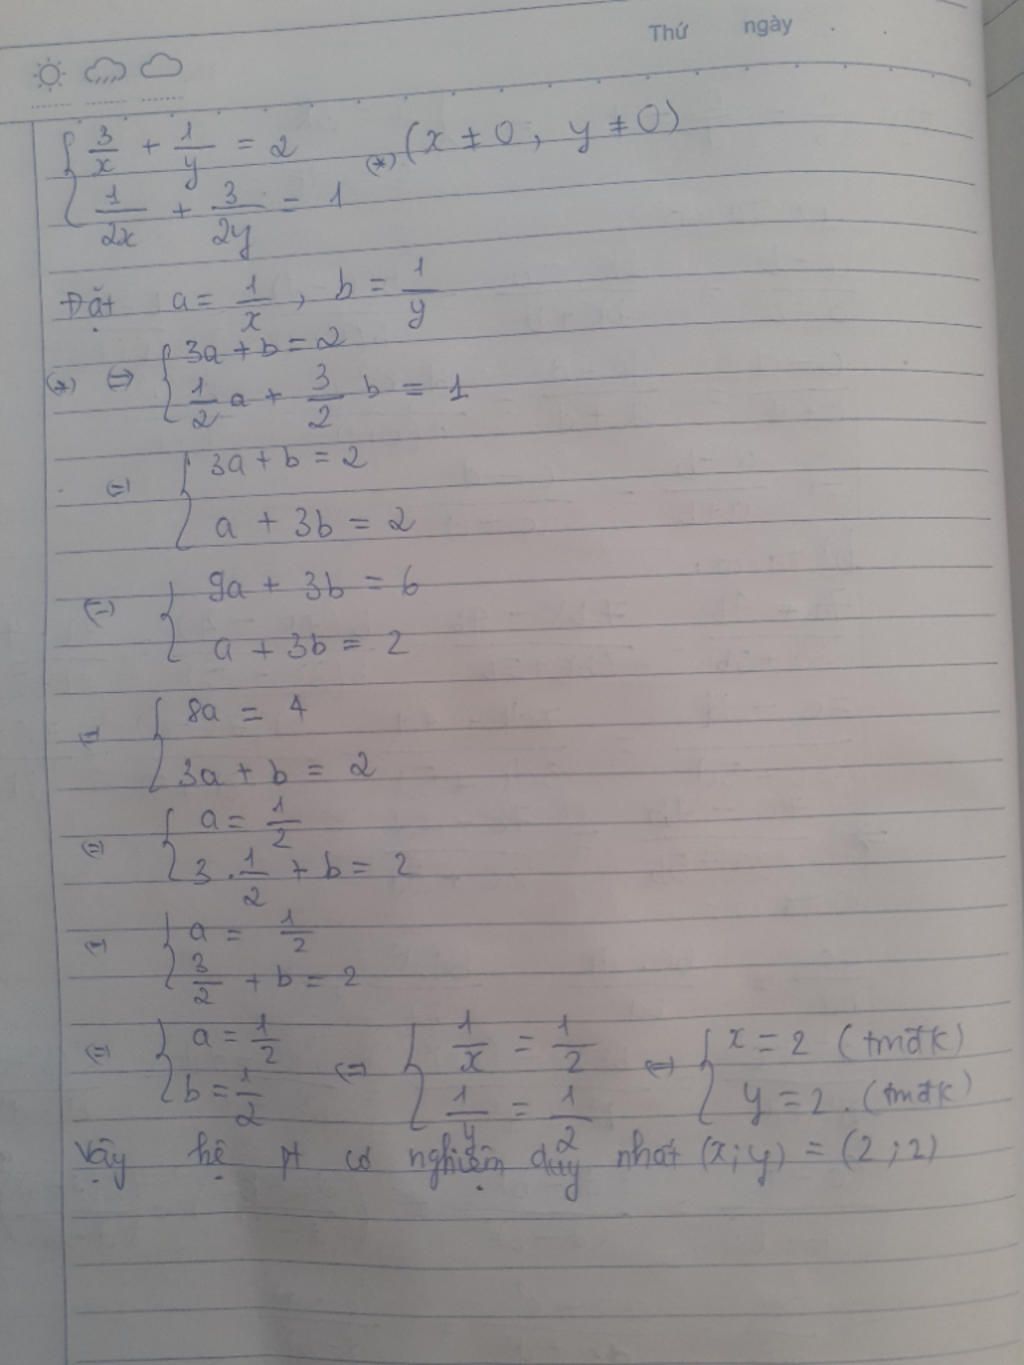 Thứ ngày
{ 3/x + 1/y = 2 (*) (x ≠ 0, y ≠ 0)
1/2x + 3/2y = 1
Đặt a = 1/x, b = 1/y
(*) ⇔ { 3a + b = 2
1/2 a + 3/2 b = 1
⇔ { 3a + b = 2
a + 3b = 2
⇔ { 9a + 3b = 6
a + 3b = 2
⇔ { 8a = 4
3a + b = 2
⇔ { a = 1/2
3 . 1/2 + b = 2
⇔ { a = 1/2
3/2 + b = 2
⇔ { a = 1/2 ⇔ { 1/x = 1/2 ⇔ { x = 2 (tmđk)
b = 1/2 1/y = 1/2 y = 2. (tmđk)
Vậy hệ pt có nghiệm duy nhất (x; y) = (2; 2)